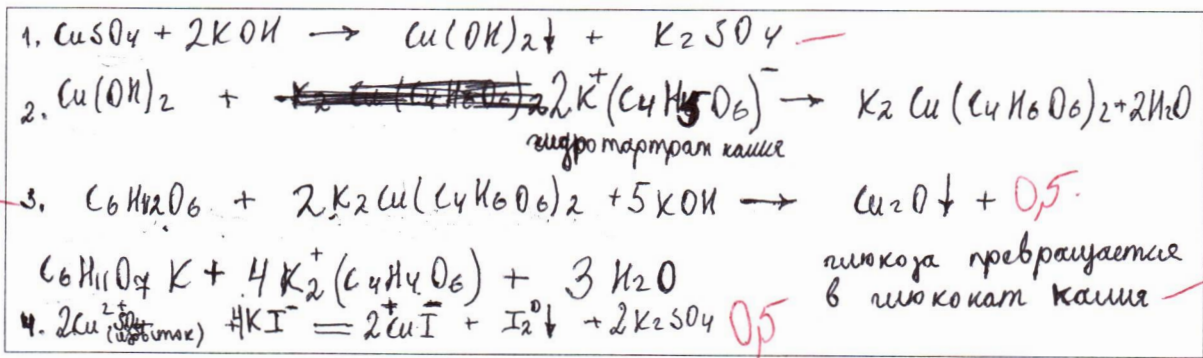 1. CuSO₄ + 2KOH → Cu(OH)₂↓ + K₂SO₄
2. Cu(OH)₂ + 2K⁺(C₄H₅O₆)⁻ → K₂Cu(C₄H₆O₆)₂+2H₂O
гидротартрат калия
3. C₆H₁₂O₆ + 2K₂Cu(C₄H₆O₆)₂ +5KOH → Cu₂O↓ + 0,5
C₆H₁₁O₇K + 4K₂⁺(C₄H₄O₆) + 3H₂O
глюкоза превращается
в глюконат калия
4. 2Cu²⁺SO₄ +4KI⁻ = 2Cu⁺I⁻ + I₂⁰↓ +2K₂SO₄ 0,5
(избыток)